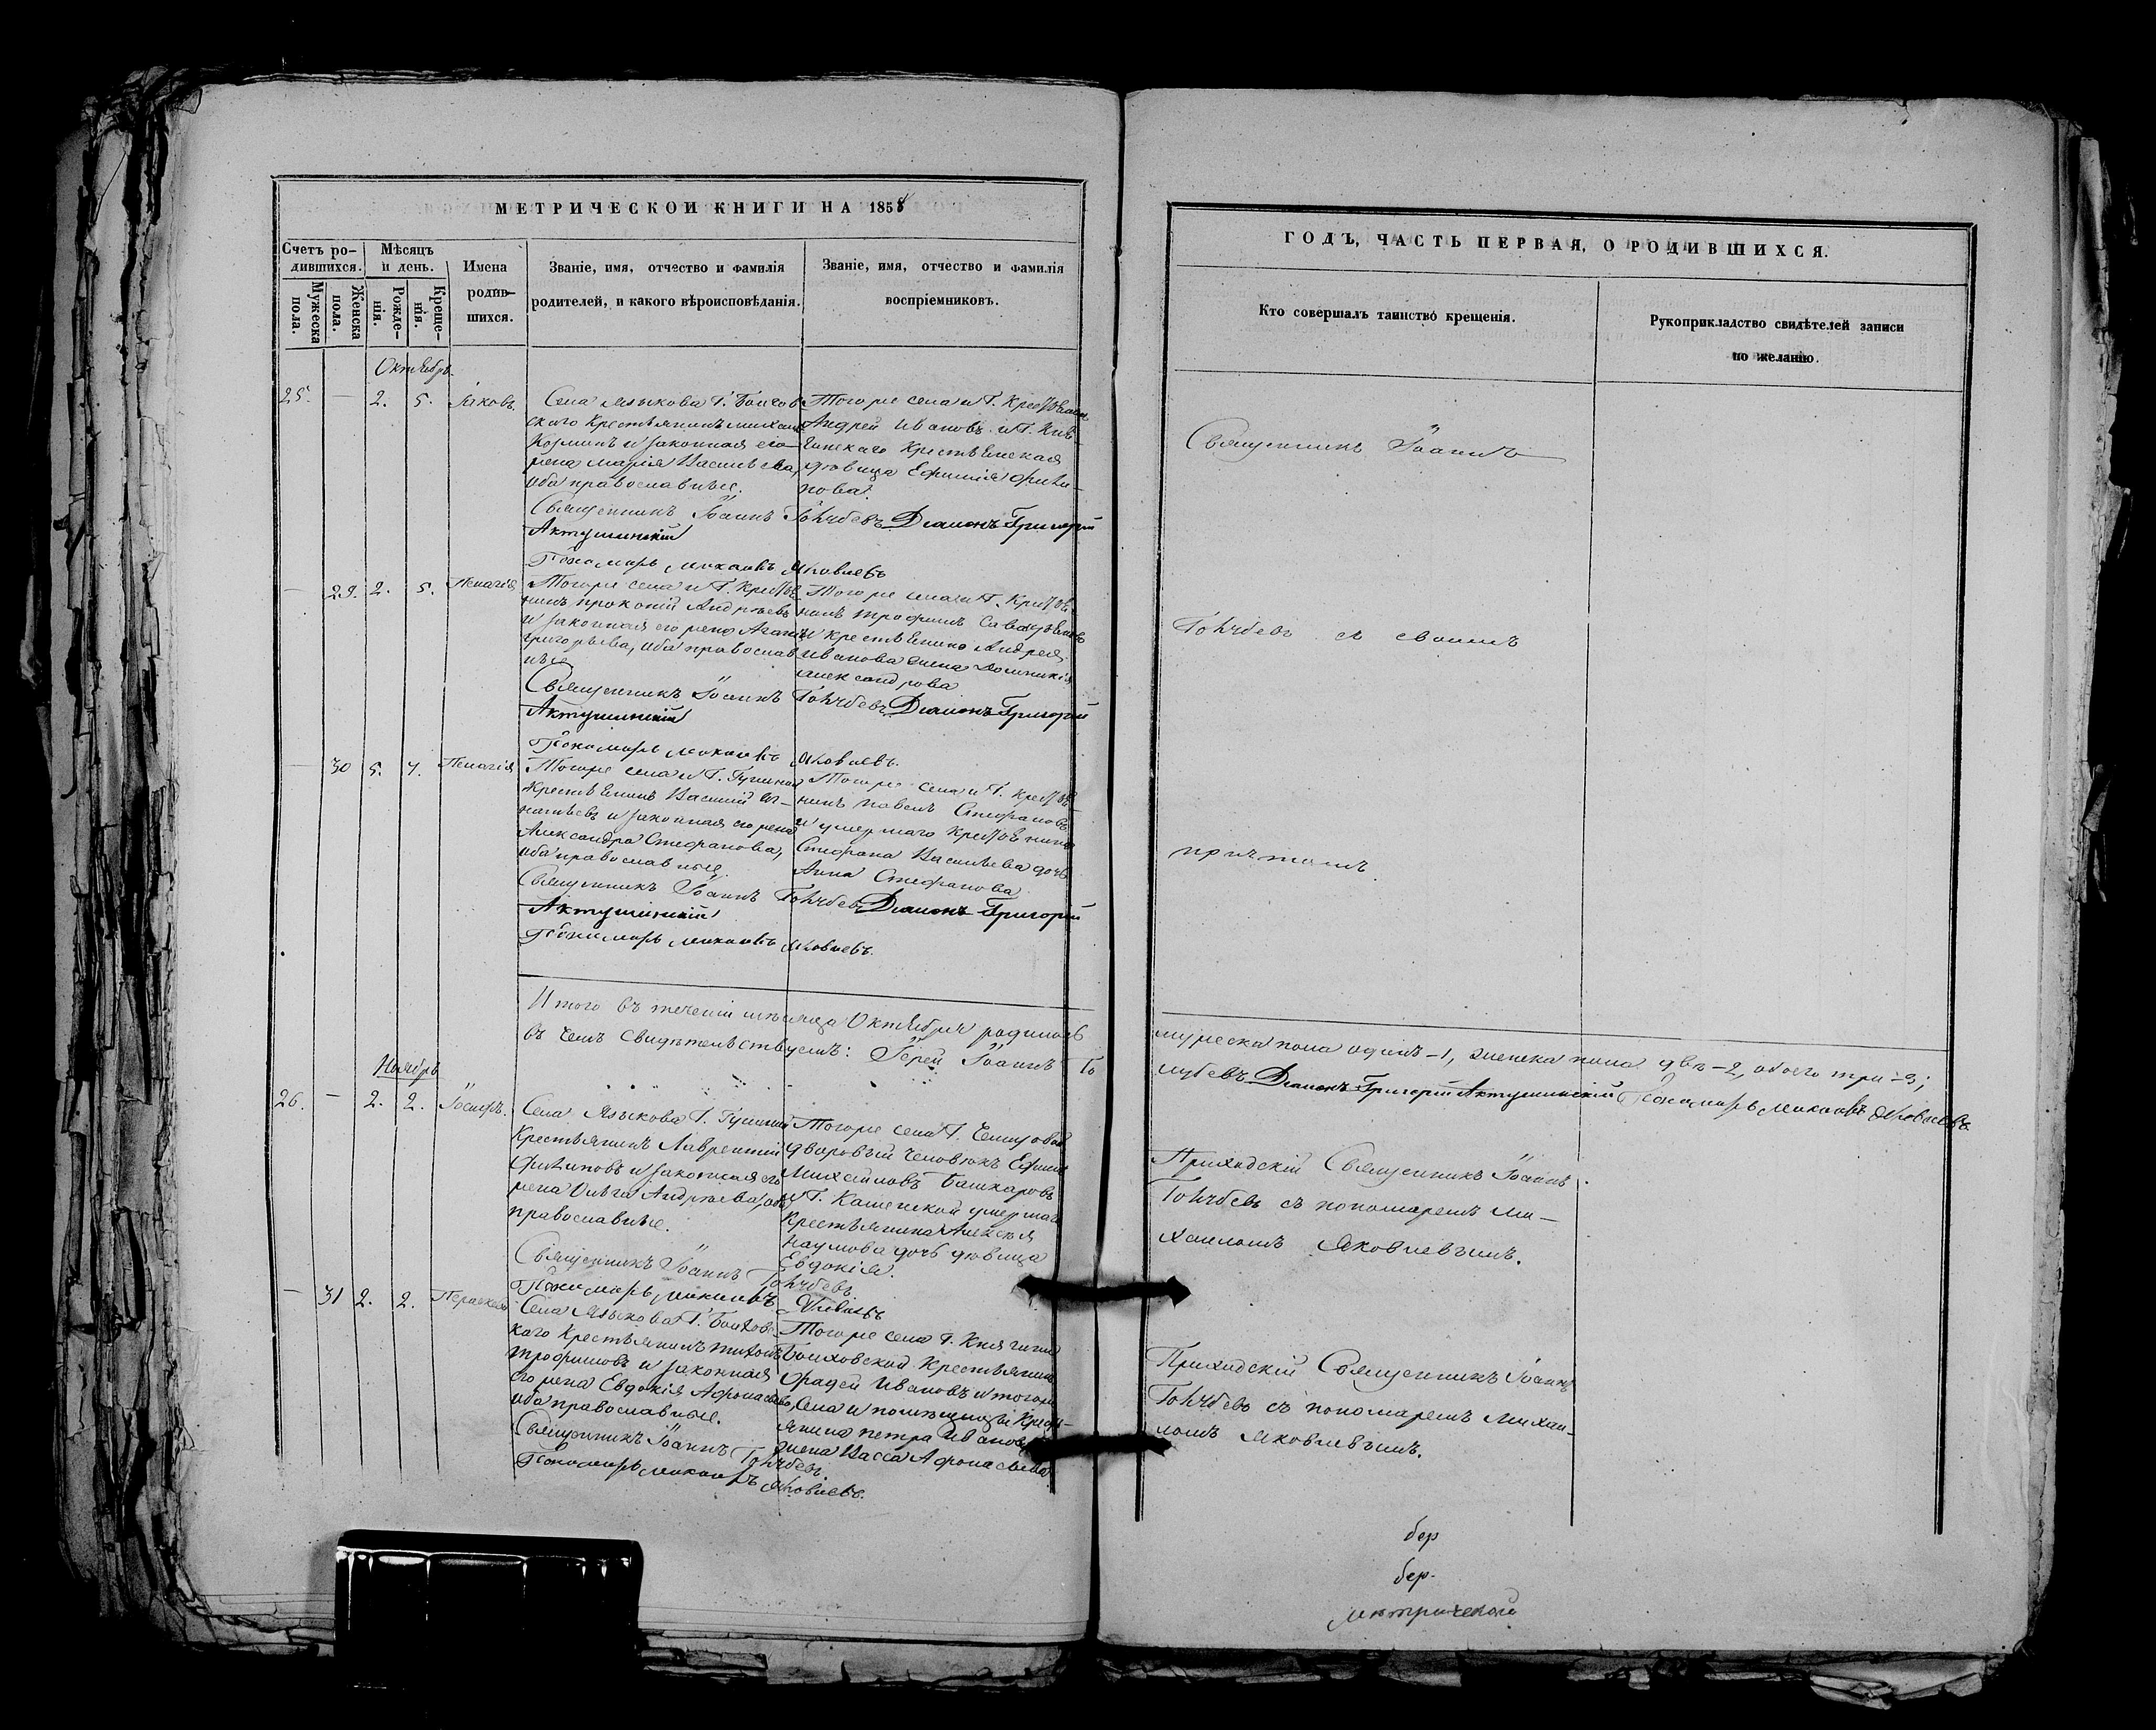 МЕТРИЧЕСКОЙ КНИГИ НА 1858
Счетъ ро-
дившихся.
Мѣсяцъ
и день.
Имена
родив-
шихся.
Званіе, имя, отчество и фамилія
родителей, и какого вѣроисповѣданія.
Званіе, имя, отчество и фамилія
воспріемниковъ.
Мужеска
пола.
Женска
пола.
Рожде-
нія.
Креще-
нія.
Октябрь
25. — 2. 5. Іаковъ.
Села Языкова Г.
скаго Крестьянинъ
Козминъ и законная его
жена Марія Васильева,
оба православные.
Тогоже села и Г.
Андрей Ивановъ и Г.
Крестьянская
дѣвица Филип-
пова.
Священникъ Іоаннъ Голубевъ Діаконъ Григорій
Актушинскій
Пономарь Михаилъ Яковлевъ
— 29. 2. 5. Пелагія
Тогоже села и Г. Крестья-
нинъ Прокопій Андреевъ
и законная его жена
Григорьева, оба православ
ные
Тогоже села и Г. Крестья-
нинъ Трофимъ
и крестьянина Андрея
Иванова жена Домникія
Александрова
Священникъ Іоаннъ Голубевъ Діаконъ Григорій
Актушинскій
Пономарь Михаилъ Яковлевъ.
— 30 5. 7. Пелагія
Тогоже села и Г.
Крестьянинъ Василій Иг-
натьевъ и законная его жена
Александра Стефанова,
оба православные.
Тогоже села и Г. Крестья-
нинъ Павелъ Стефановъ
и умершаго Крестьянина
Стефана Васильева дочь
Анна Стефанова
Священникъ Іоаннъ Голубевъ Діаконъ Григорій
Актушинскій
Пономарь Михаилъ Яковлевъ.
Итого въ теченіи мѣсяца Октября родилось
въ чемъ свидѣтельствуемъ: Іерей Іоаннъ Го
Ноябрь
26. — 2. 2. Іосифъ.
Села Языкова Г.
Крестьянинъ Лаврентій
Филиповъ и законная его
жена Ольга Андреева, оба
православные.
Тогоже села Г.
дворовый человѣкъ Ефимъ
Михайловъ Башкаровъ
и Г. умершаго
Крестьянина Алексѣя
Наумова дочь дѣвица
Евдокія.
Священникъ Іоаннъ Голубевъ
Пономарь Михаилъ Яковлевъ
— 31 2. 2. Параскева
Села Языкова Г.
каго Крестьянинъ
Трофимовъ и законная
его жена Евдокія Афонасьева,
оба православные.
Тогоже села Г.
Крестьянинъ
Ивановъ и тогоже
Села и помѣщицы Крест-
янина Петра Иванова
жена Васса Афонасьева
Священникъ Іоаннъ Голубевъ
Пономарь Михаилъ Яковлевъ.
ГОДЪ, ЧАСТЬ ПЕРВАЯ, О РОДИВШИХСЯ.
Кто совершалъ таинство крещенія.
Рукоприкладство свидѣтелей записи
по желанію.
Священникъ Іоаннъ
Голубевъ съ своимъ
причтомъ.
мужеска пола одинъ — 1, женска пола двѣ — 2, обоего три — 3;
лубевъ Діаконъ Григорій Актушинскій Пономарь Михаилъ Яковлевъ
Приходскій Священникъ Іоаннъ
Голубевъ съ пономаремъ Ми-
хаиломъ Яковлевымъ.
Приходскій Священникъ Іоаннъ
Голубевъ съ пономаремъ Михаи-
ломъ Яковлевымъ.
бер
бер.
метрической